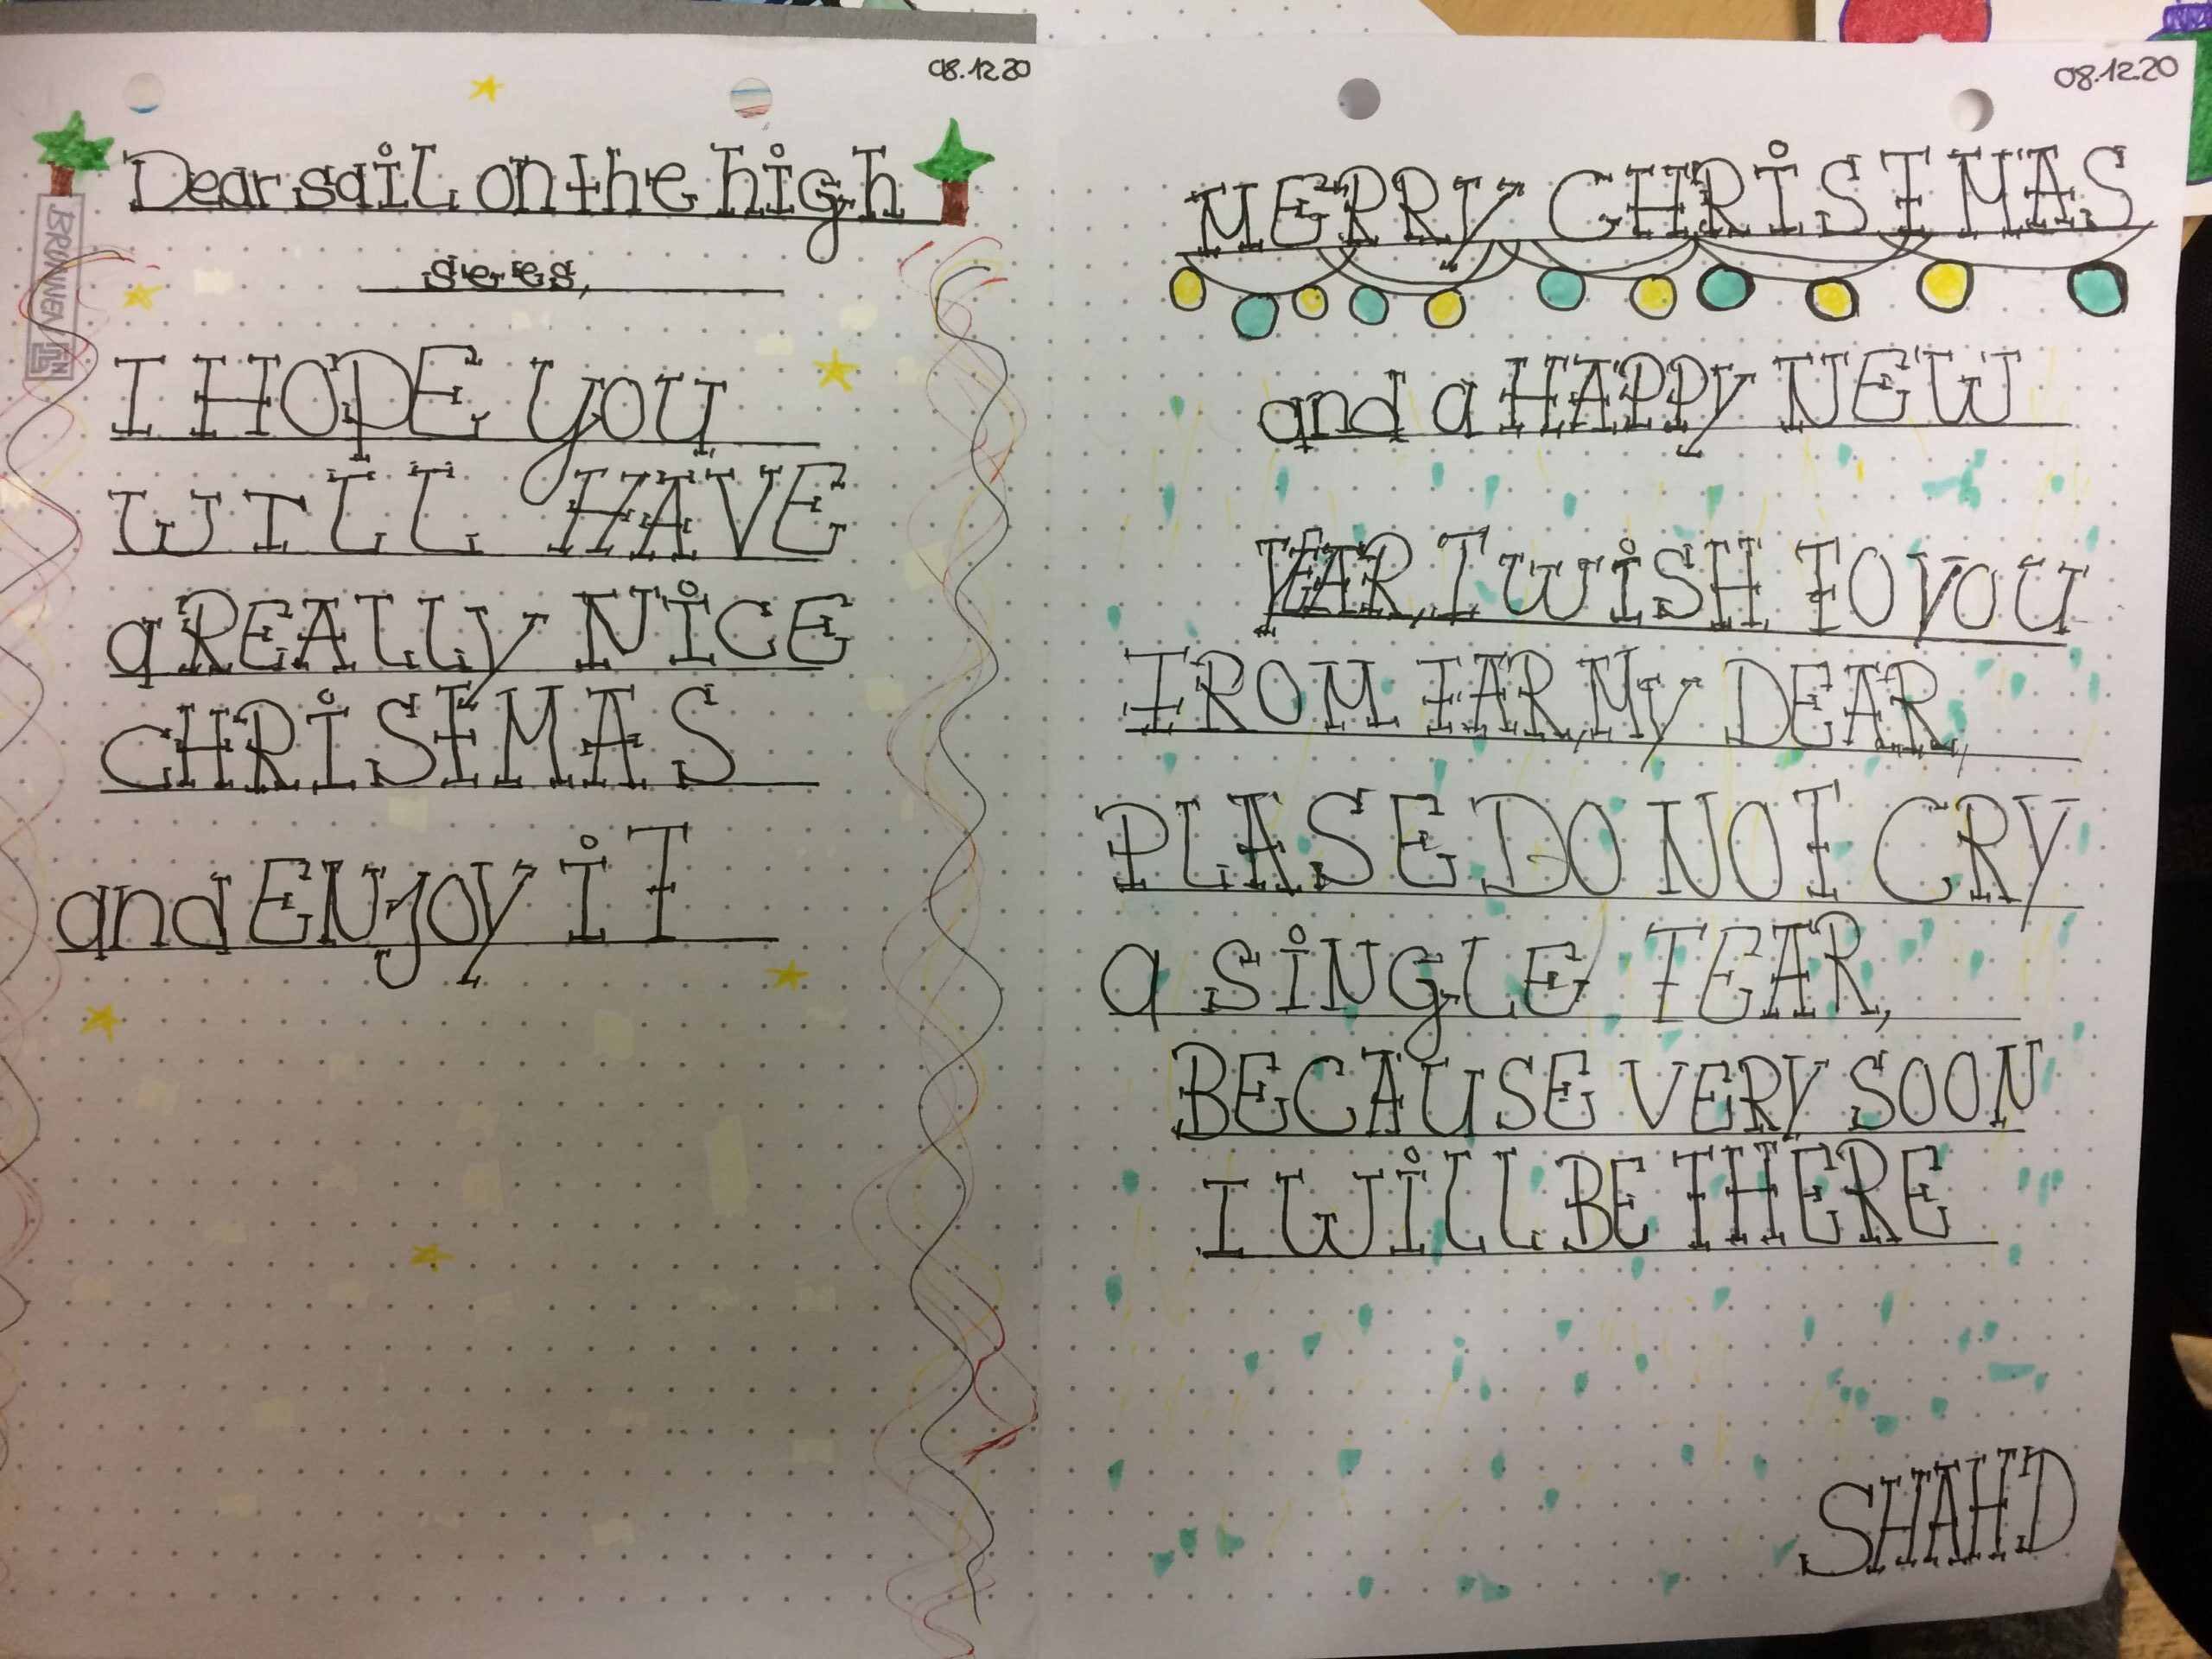 08.12.20
Dear sail on the high
seres,
I HOPE you
WILL HAVE
a REALLY NICE
CHRISTMAS
and ENjOY iT
BRUNNEN
08.12.20
MERRY CHRISTMAS
and a HAPPY NEW
YEAR, I WISH TO YOU
FROM FAR, MY DEAR,
PLASE DO NOT CRY
a SINgLE TEAR,
BECAUSE VERY SOON
I WILL BE THERE
SHAHD